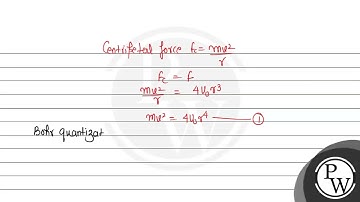 Centripetal force fc = mv²/r
fc = f
mv²/r = 4U₀r³
mv² = 4U₀r⁴ ——— ①
Bohr quantizat
PW